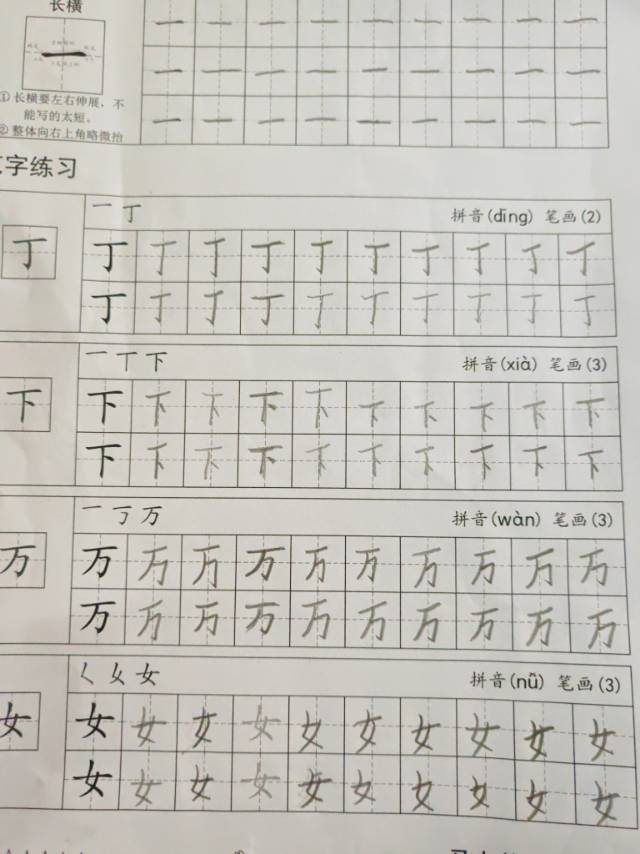 长横
一 一 一 一 一 一 一 一 一
一 一 一 一 一 一 一 一 一
一 一 一 一 一 一 一 一 一
一
①长横要左右伸展，不
能写的太短。
②整体向右上角略微抬
字练习
一 丁 拼音(dīng) 笔画(2)
丁
丁 丁 丁 丁 丁 丁 丁 丁 丁 丁
丁 丁 丁 丁 丁 丁 丁 丁 丁 丁
一 丅 下 拼音(xià) 笔画(3)
下
下 下 下 下 下 下 下 下 下 下
下 下 下 下 下 下 下 下 下 下
一 丂 万 拼音(wàn) 笔画(3)
万
万 万 万 万 万 万 万 万 万 万
万 万 万 万 万 万 万 万 万 万
𡿨 女 拼音(nǚ) 笔画(3)
女
女 女 女 女 女 女 女 女 女 女
女 女 女 女 女 女 女 女 女 女